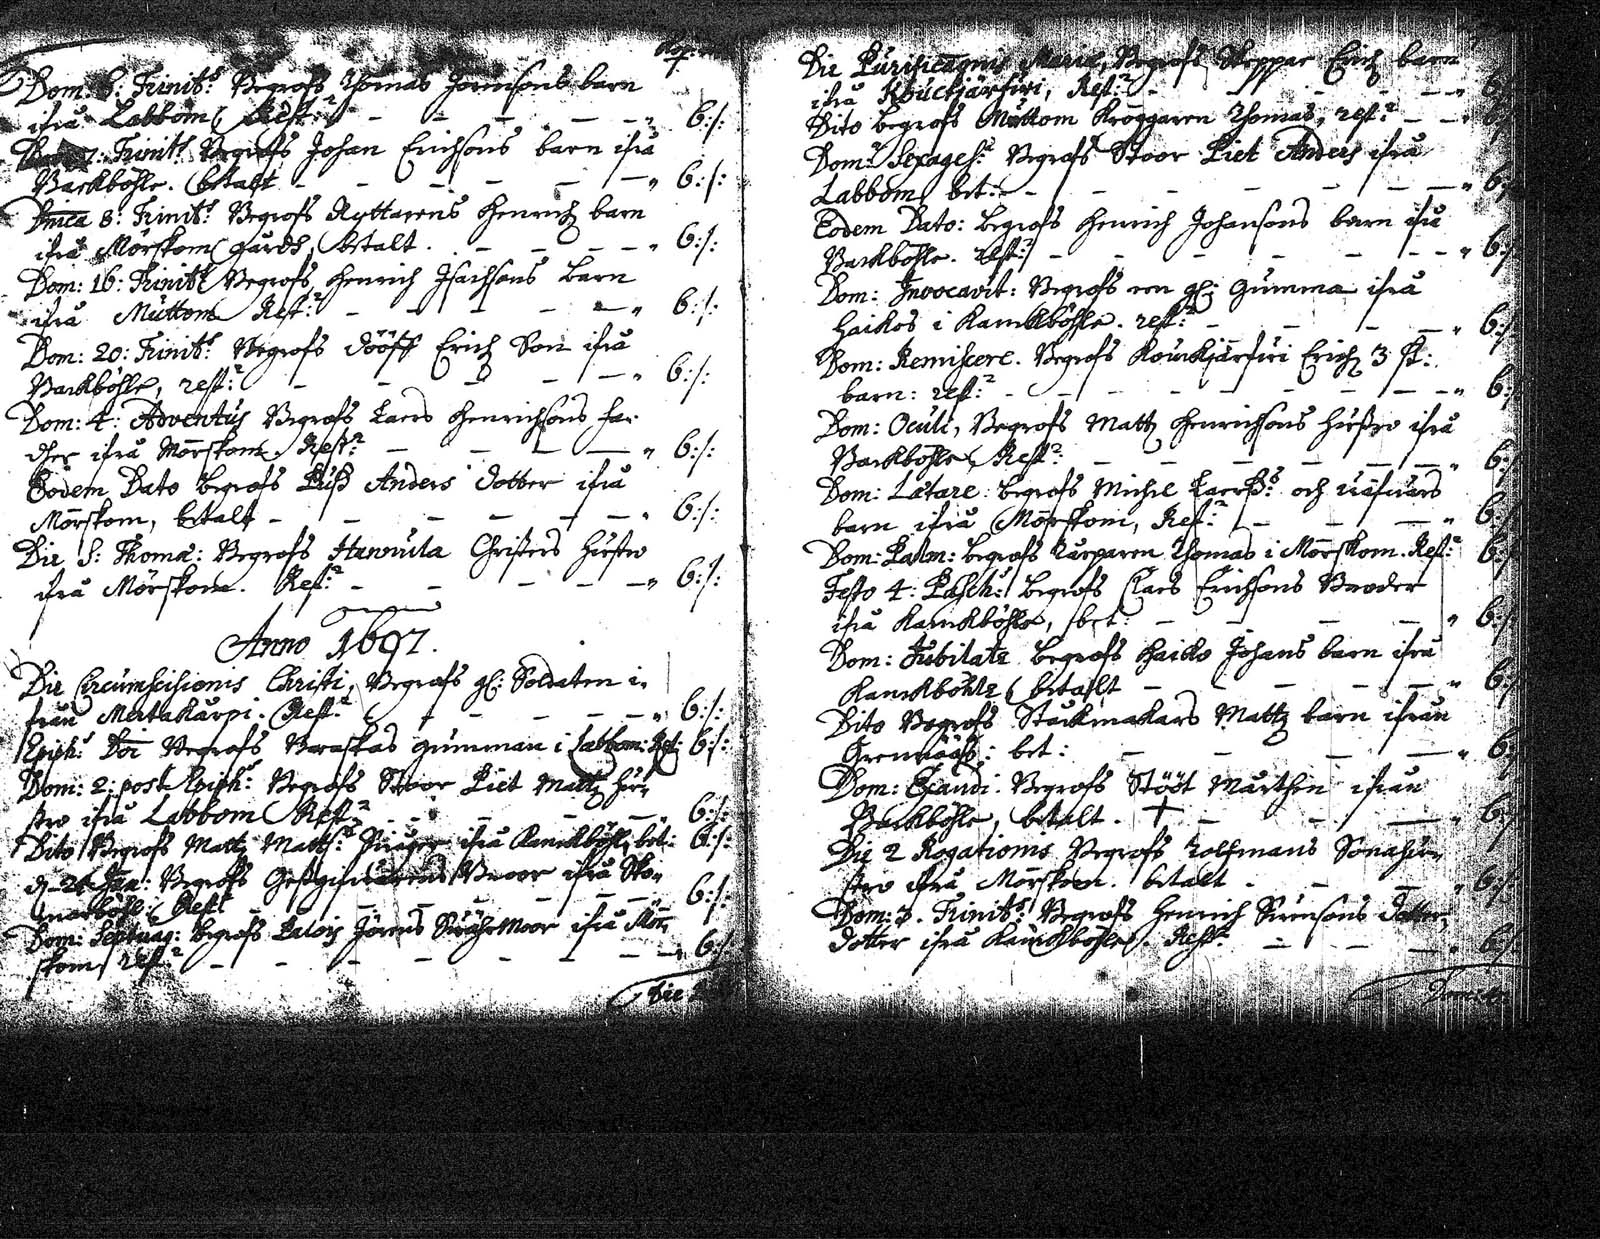 Dom: 6: Trinit: Begrofs Thomas Jörensons barn
ifrå Labbom Rest: – – – – 6:/:
7: Trinit: Begrofs Johan Erichsons barn ifrå
Backböhle. betalt – – – – 6:/:
Dnica 8: Trinit: Begrofs Ryttarens Henrich barn
ifrå Mörskom gårdh, betalt. – – – 6:/:
Dom: 16: Trinit: Begrofs Henrich Isachsons barn
ifrå Muttom Rest: – – – – 6:/:
Dom: 20: Trinit: Begrofs dööff Erich Son ifrå
Backböhle, rest: – – – – 6:/:
Dom: 4: Adventus Begrofs Lars Henrichsons far
dher ifrå Mörskom. Rest: – – – 6:/:
Eodem Dato begrofs Anders dotter ifrå
Mörskom, betalt – – – – 6:/:
Die S: Thomæ: Begrofs Hannula Christers hustro
ifrå Mörskom. Rest: – – – – 6:/:
Anno 1697.
Die Circumscisionis Christi, Begrofs gl: Soldaten i
från Metakurpi. Rest: – – – – 6:/:
Epiph: Doi Begrofs Baraskas gumman i Labbom: Rest: 6:/:
Dom: 2: post Epiph: Begrofs Stoor Piet Mattz hu
stro ifrå Labbom Rest: – – – 6:/:
Dito Begrofs Matz Matts: Swåger ifrå Kanckböhle, bet: 6:/:
d. 24 Jan: Begrofs Gestgifwarens Broor ifrå Sko
marböhle: Rest – – – 6:/:
Dom: Septuag: begrofs Palois Jörens Swähr Moor ifrå Mör
skom, rest: – – – – 6:/:
Die
Die Purificagnis Mariæ, Begrofs Skeppar Erich barn
ifrå Kouckjärfwi, Rest: – – – 6:
Dito begrofs Muttom Kroggaren Thomas, rest: – – 6:
Dom: Sexages: Begrofs Stoor Piet Anders ifrå
Labbom bet: – – – – 6:
Eodem Dato: begrofs Henrich Johansons barn ifrå
Backböhle. rest: – – – – 6:/
Dom: Invocavit: Begrofs een gl: Gumma ifrå
Haikos i Kanckböhle. rest: – – – 6:/
Dom: Reminiscere. Begrofs Kouckjärfwi Erich 3 st:
barn: rest: – – – – 6:
Dom: Oculi, Begrofs Matz Henrichsons hustro ifrå
Backböhle, Rest: – – – – 6:
Dom: Lätare: begrofs Michel Larss: och
barn ifrå Mörskom, Rest: – – – 6:/
Dom: Palm: begrofs Thomas i Mörskom. Rest: 6:/
Festo 4: Pasch: begrofs Clas Erichsons Broder
ifrå Kanckböhle, bet: – – – 6:/
Dom: Jubilate begrofs Haiko Johans barn ifrå
Kanckböhle betalt – – – – 6:
Dito Begrofs Stackmakars Mattz barn ifrån
Grennääs: bet: – – – – 6:
Dom: Exaudi. Begrofs Stööt Mårthen ifrån
Backböhle, betalt. † – – – 6:
Die 2 Rogationis Begrofs Tolfmans Sonahu
stro ifrå Mörskom. betalt – – – 6:/:
Dom: 3. Trinit: Begrofs Henrich Simonsons dotter
dotter ifrå Kanckböhle. Rest: – – – 6:/: